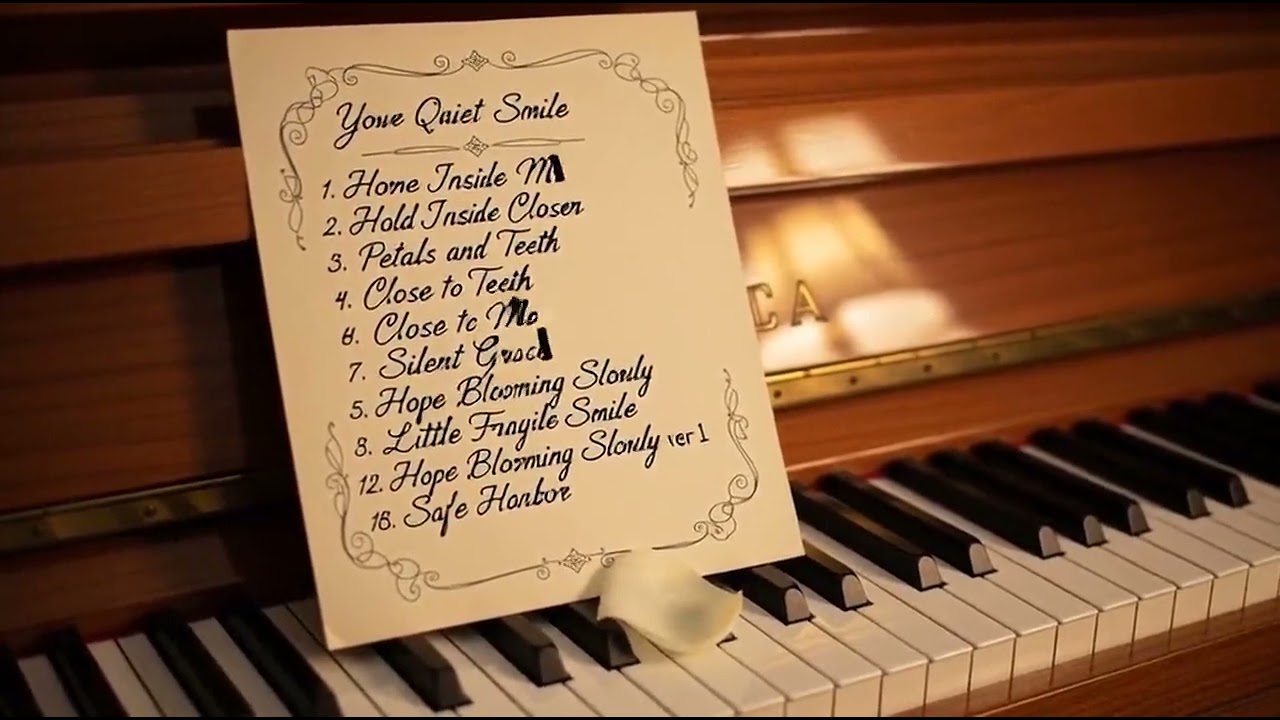 Youe Quiet Smile
1. Home Inside M
2. Hold Inside Closer
3. Petals and Teeth
4. Close to Teeth
6. Close tc Mo
7. Silent
5. Hope Blooming Slouly
8. Little Fragile Smile
12. Hope Blooming Slouly ver 1
16. Safe Honbor
CA